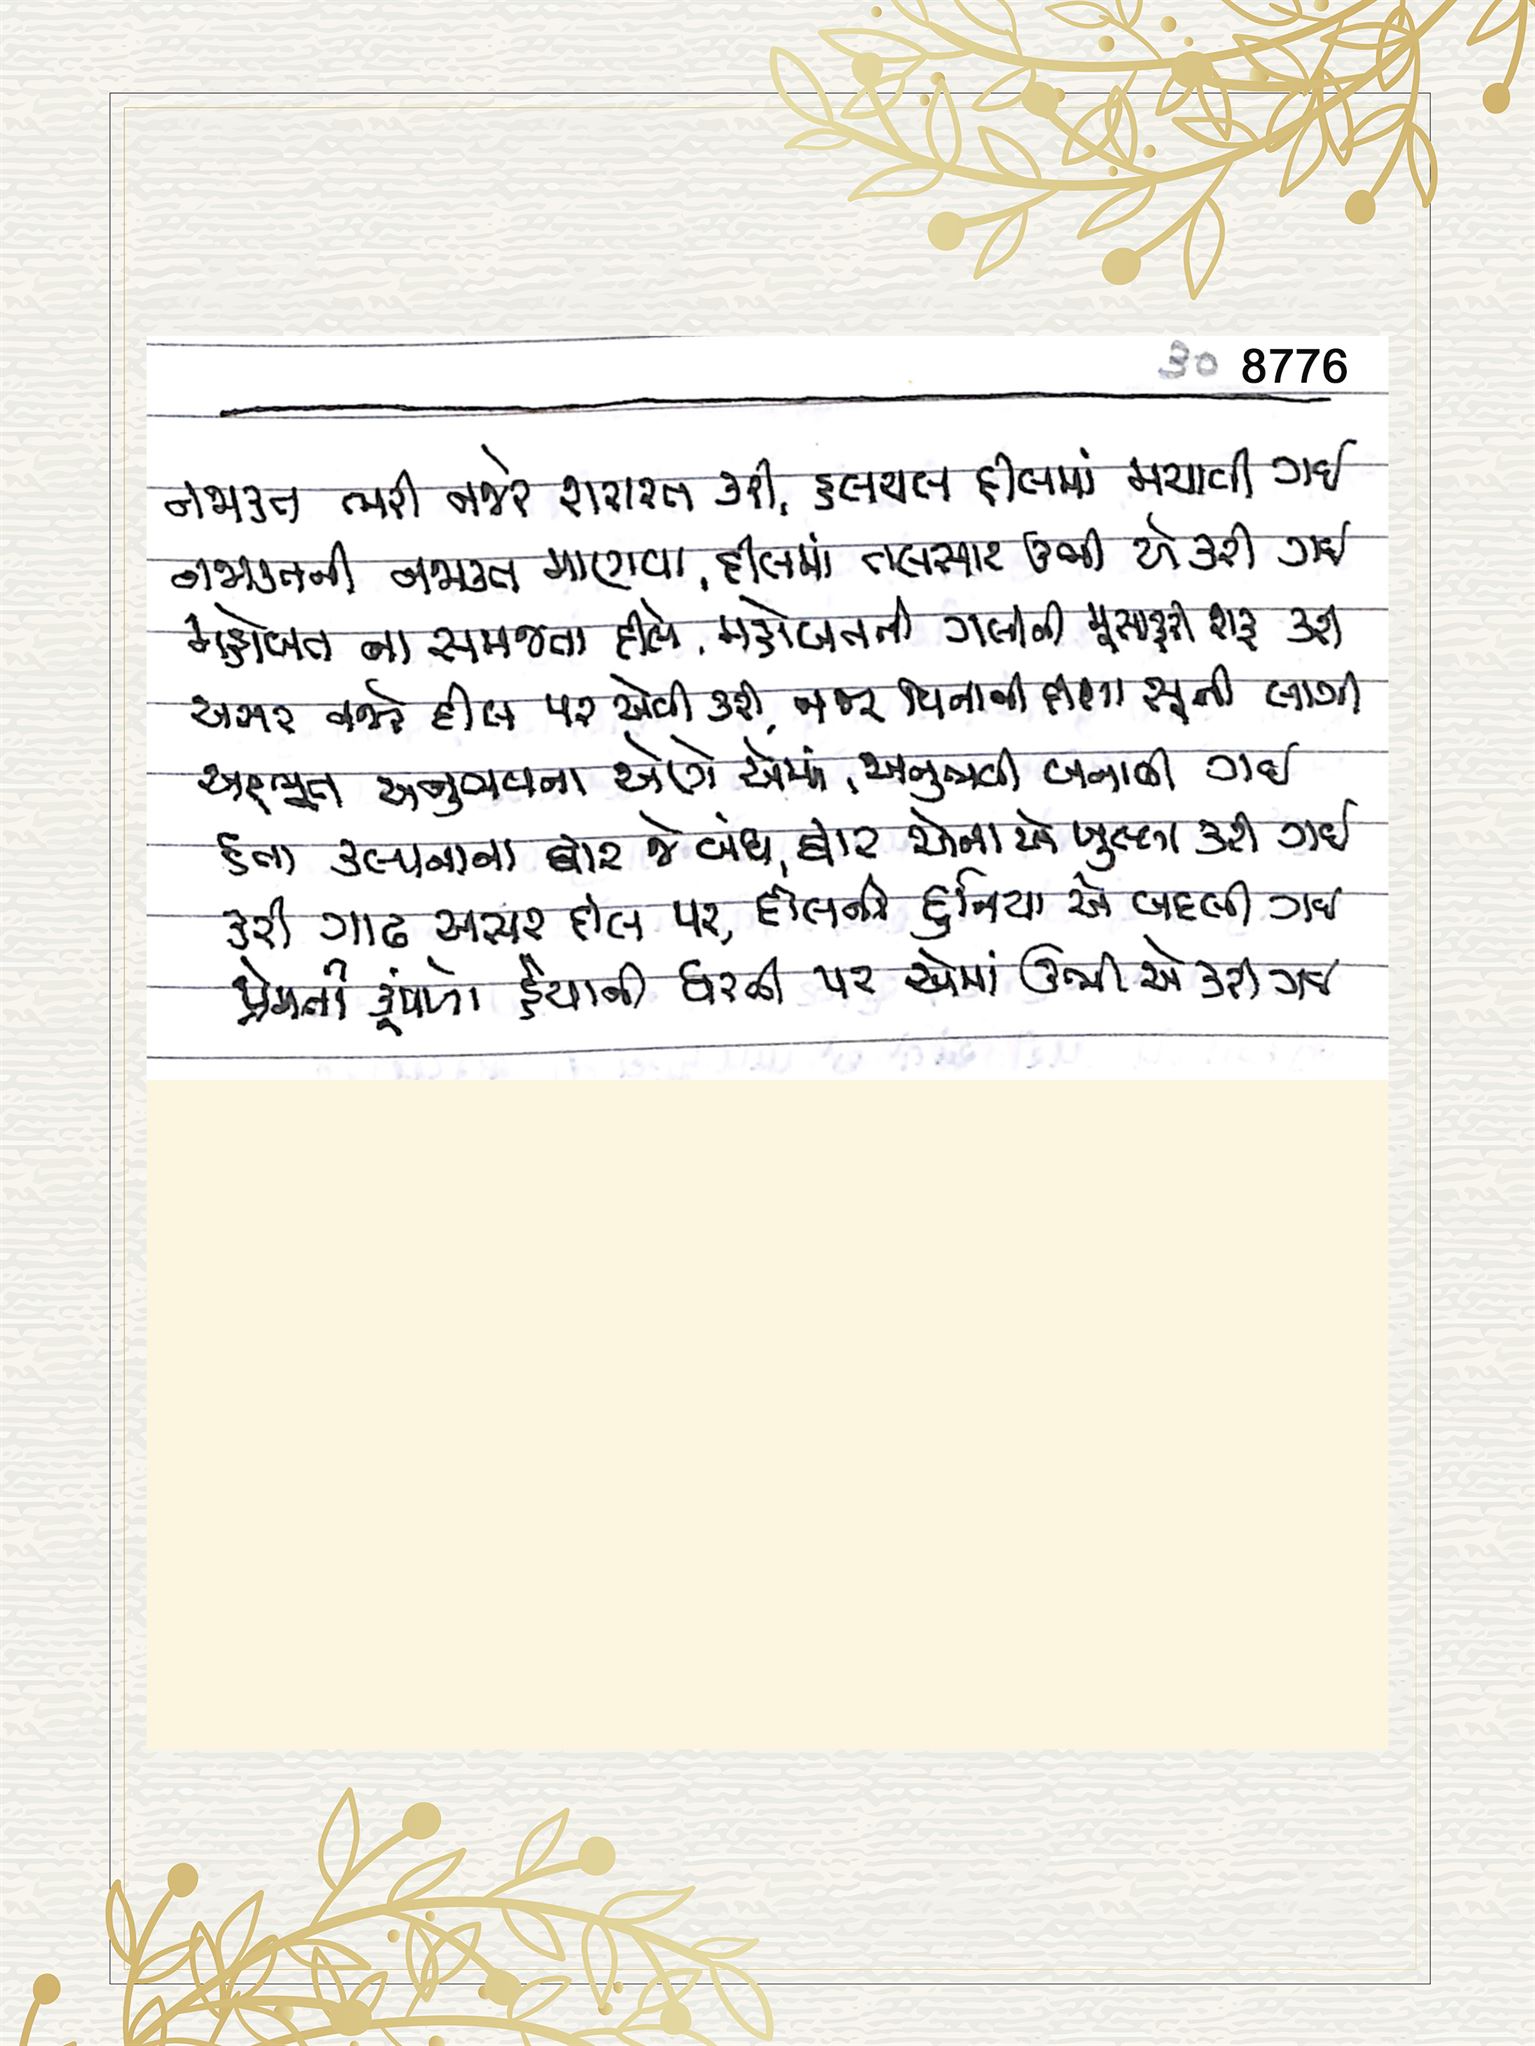 ૩૦ 8776
નજાકત ભરી નજરે શરારત કરી, હલચલ દીલમાં મચાવી ગઈ
નજાકતની નજાકત માણવા, દીલમાં તલસાટ ઉભી એ કરી ગઈ
મહોબત ના સમજતા દીલે, મહોબતની ગલીની મુસાફરી શરૂ કરી
અસર નજરે દીલ પર એવી કરી, નજર વિનાની ક્ષણ સૂની લાગી
અદ્ભૂત અનુભવના એણે એમાં, અનુભવી બનાવી ગઈ
હતા કલ્પનાના દ્વાર જે બંધ, દ્વાર એના એ ખુલ્લા કરી ગઈ
કરી ગાઢ અસર દીલ પર, દીલની દુનિયા એ બદલી ગઈ
પ્રેમની કૂંપળો હૈયાની ધરતી પર એમાં ઉભી એ કરી ગઈ